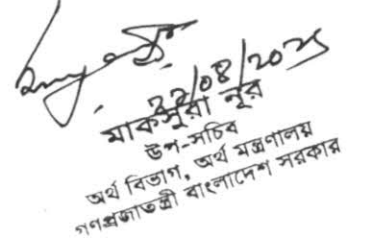 22/04/2025
মাকসুরা নূর
উপ-সচিব
অর্থ বিভাগ, অর্থ মন্ত্রণালয়
গণপ্রজাতন্ত্রী বাংলাদেশ সরকার